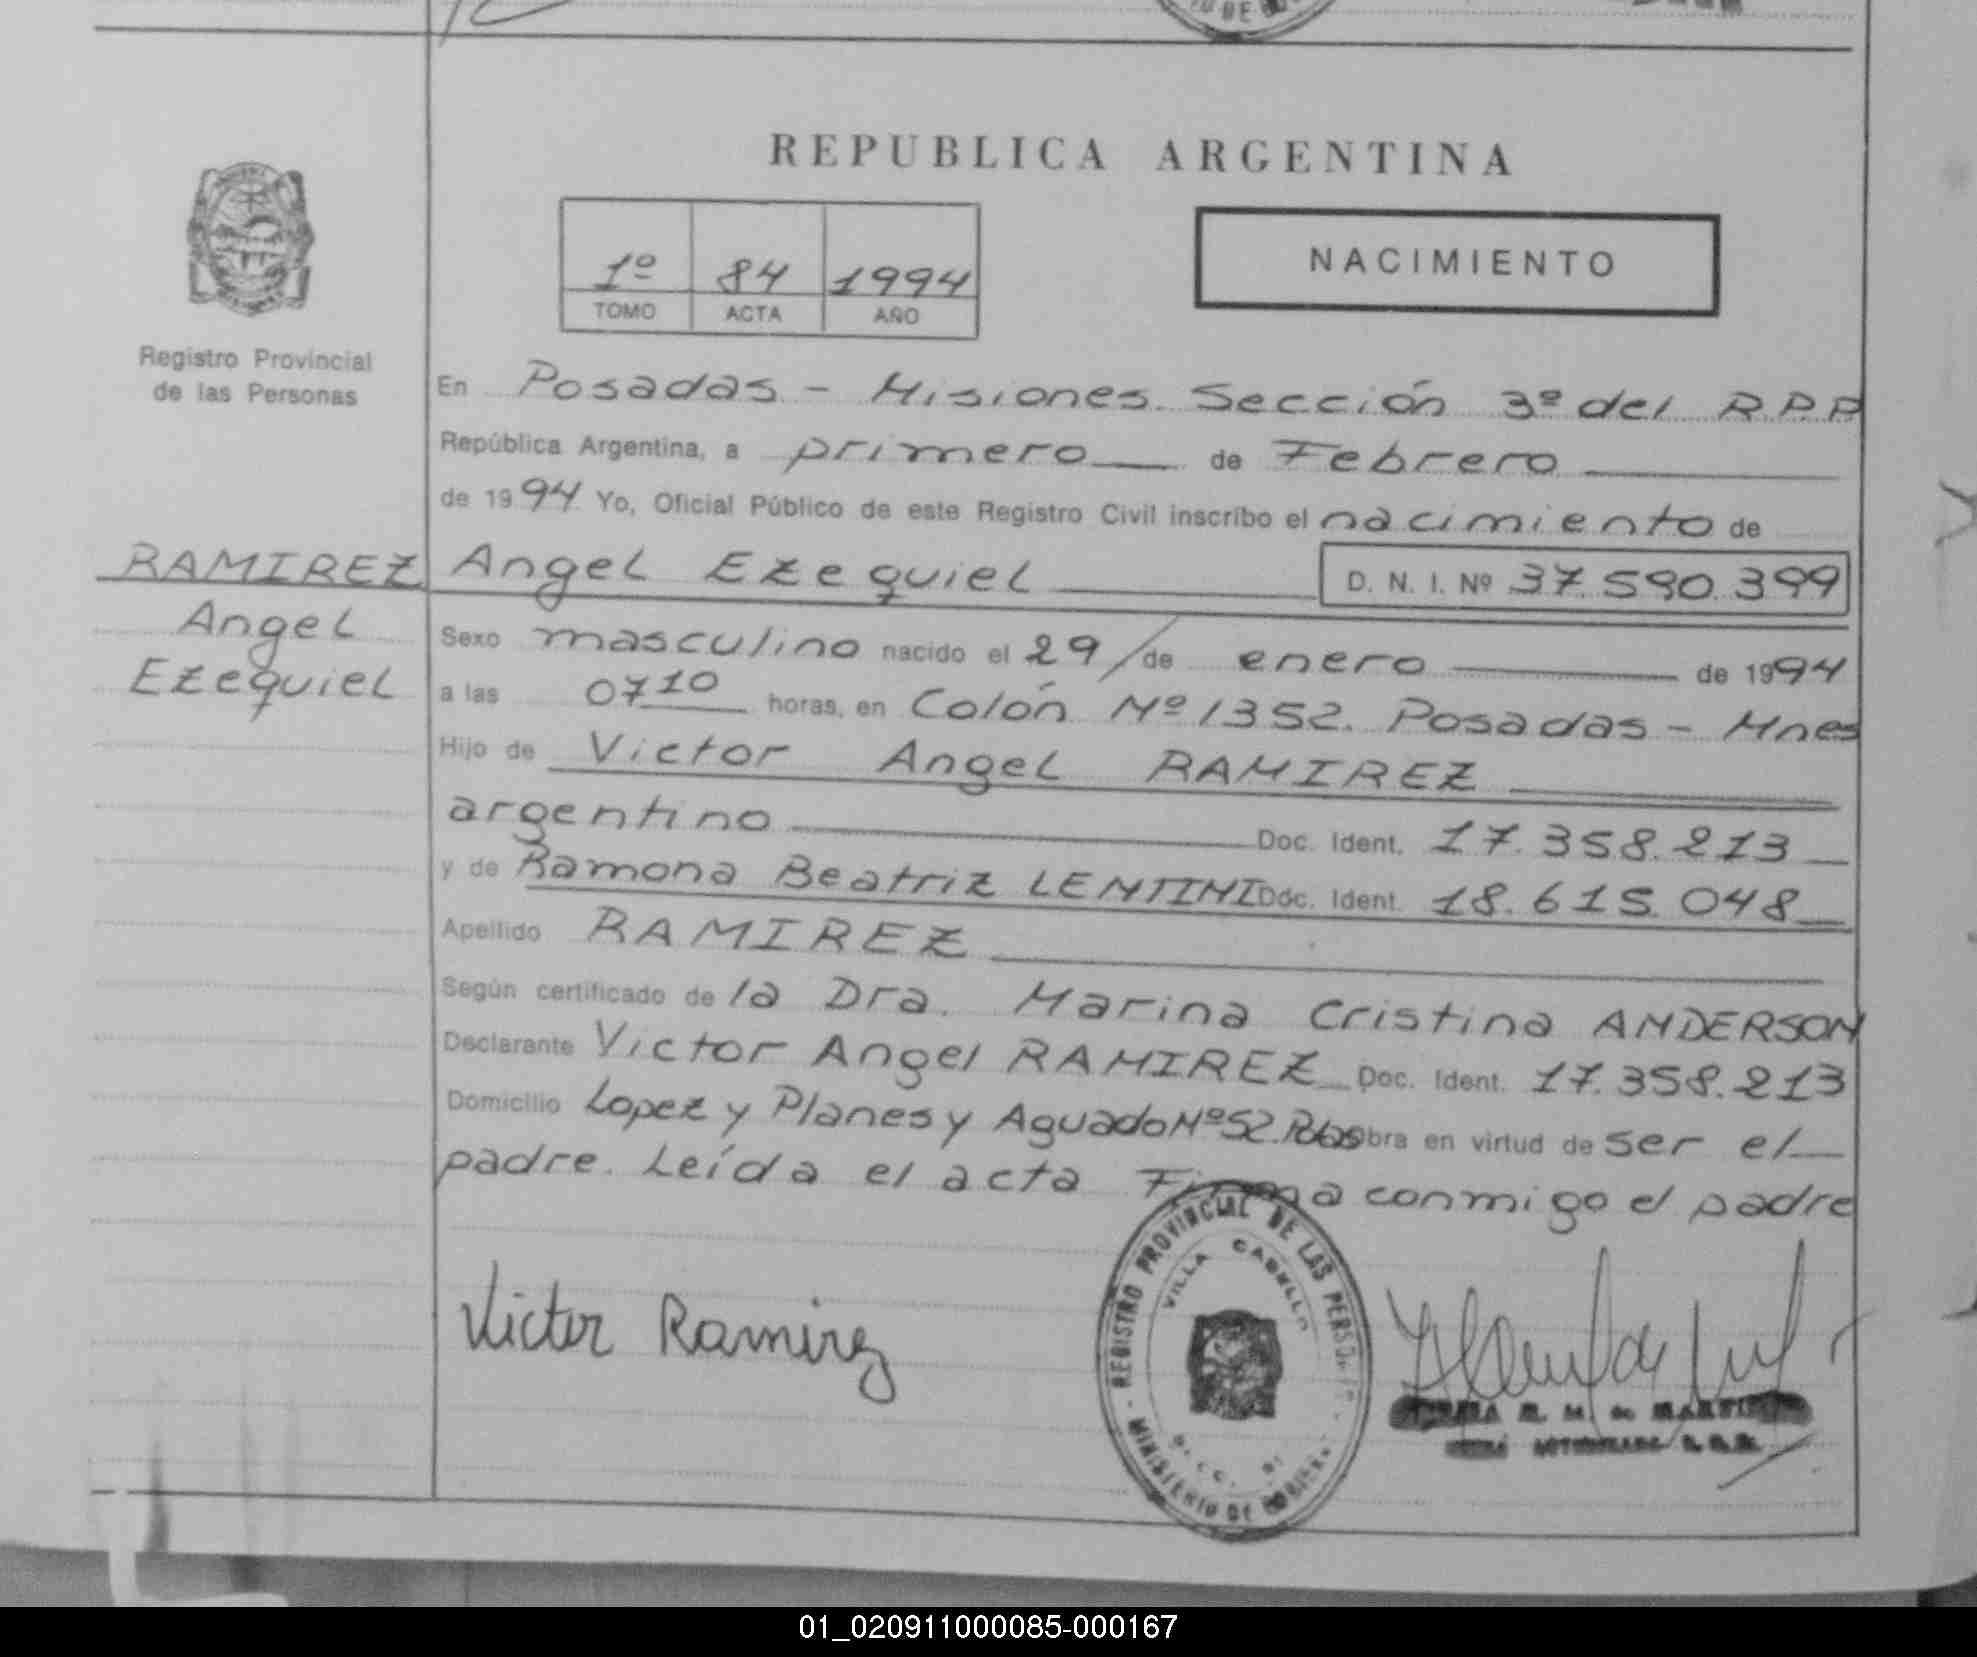 REPUBLICA ARGENTINA
1º 84 1994
TOMO ACTA AÑO
NACIMIENTO
Registro Provincial
de las Personas
En Posadas - Misiones. Sección 3º del R.P.P
República Argentina, a primero de Febrero
de 1994 Yo, Oficial Público de este Registro Civil inscribo el nacimiento de
RAMIREZ Angel Ezequiel D. N. I. Nº 37.590.399
Angel
Ezequiel
Sexo masculino nacido el 29/de enero de 1994
a las 0710 horas, en Colón Nº 1352. Posadas - Mnes
Hijo de Victor Angel RAMIREZ
argentino Doc. Ident. 17.358.213
y de Ramona Beatriz LENTINI Doc. Ident. 18.615.048
Apellido RAMIREZ
Según certificado de la Dra. Marina Cristina ANDERSON
Declarante Victor Angel RAMIREZ Doc. Ident. 17.358.213
Domicilio Lopez y Planes y Aguado Nº 52. obra en virtud de ser el
padre. Leída el acta Firma conmigo el padre
Victor Ramirez
REGISTRO PROVINCIAL DE LAS PERSONAS
VILLA CABELLO
MINISTERIO DE GOBIERNO
01_020911000085-000167